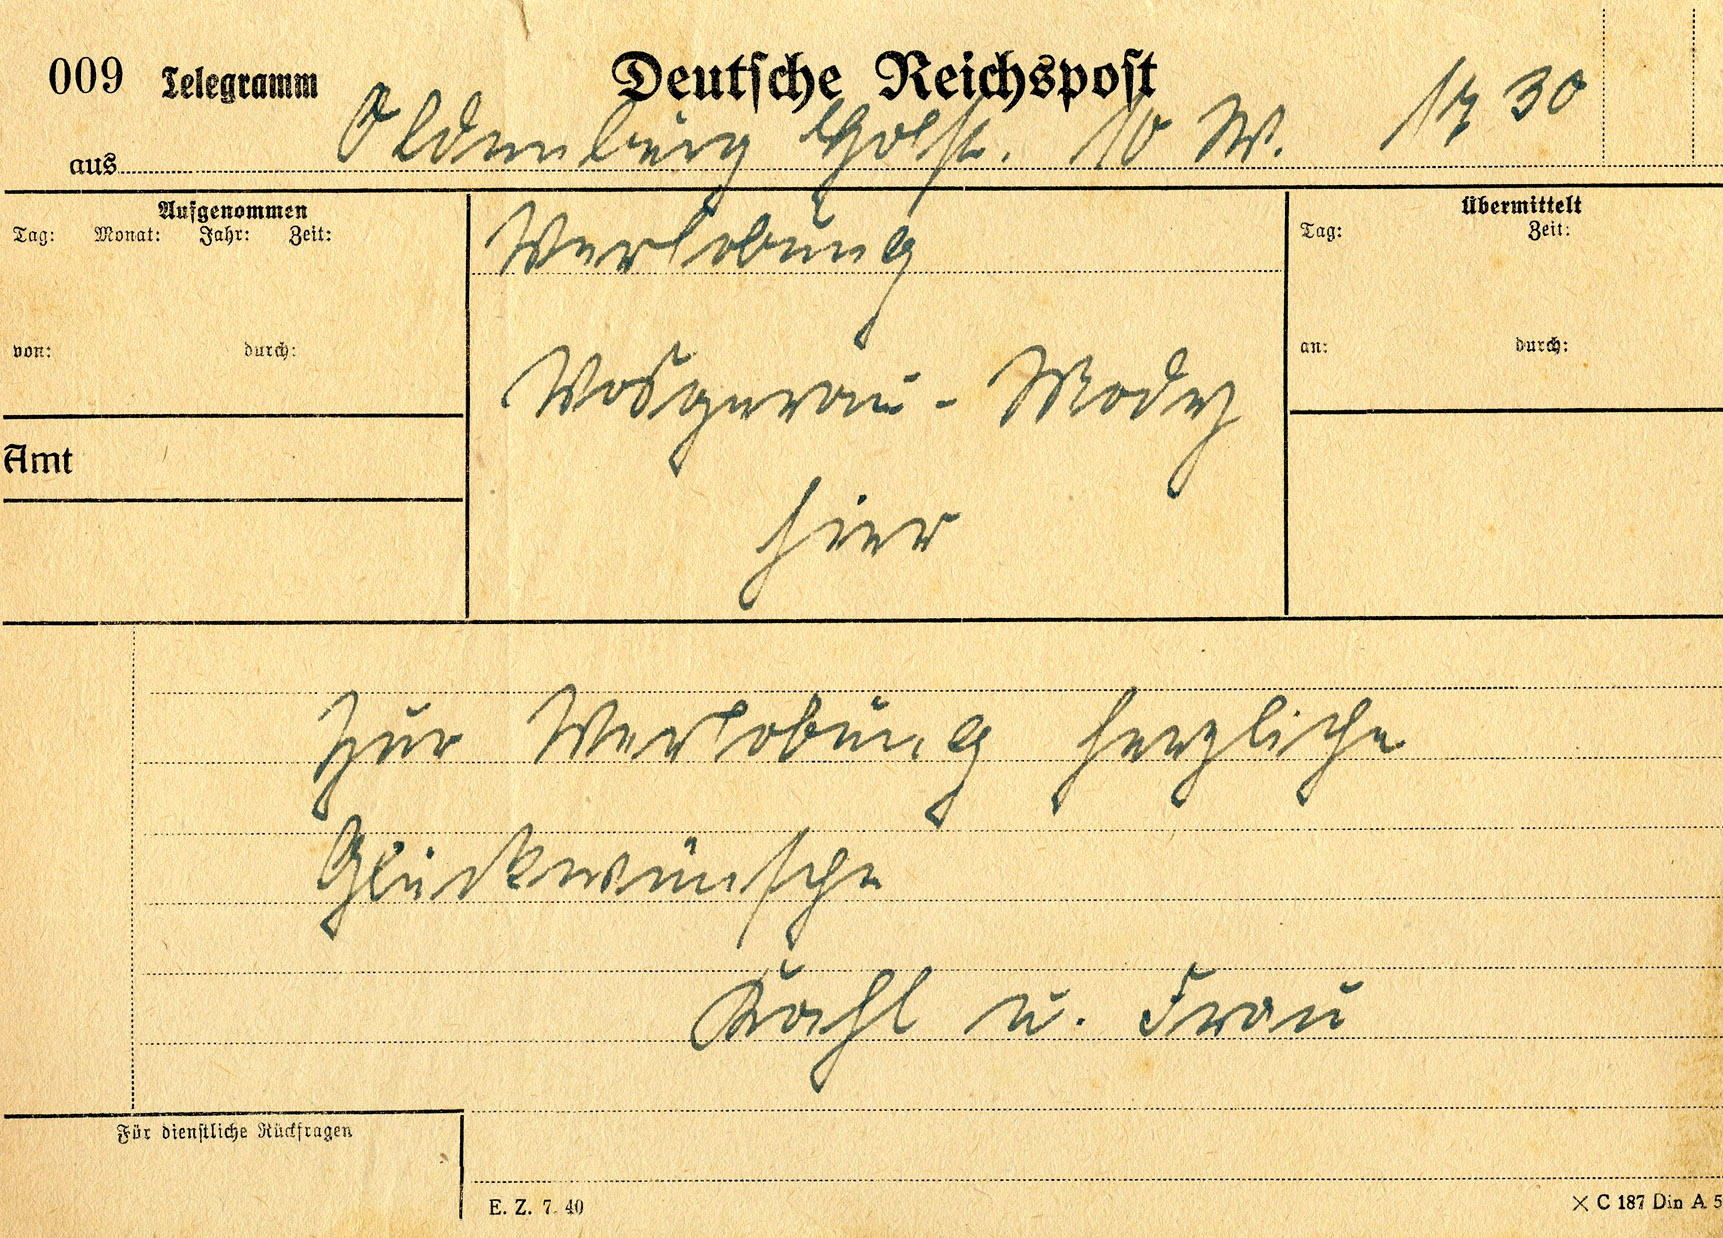 009 Telegramm Deutsche Reichspost
aus Oldenburg Holst. 10 W. 17 30
Aufgenommen
Tag: Monat: Jahr: Zeit:
von: durch:
Amt
Verlobung
Vosgerau - Mody
hier
Übermittelt
Tag: Zeit:
an: durch:
Zur Verlobung herzliche
Glückwünsche
Kahl u. Frau
Für dienstliche Rückfragen
E. Z. 7. 40
× C 187 Din A 5